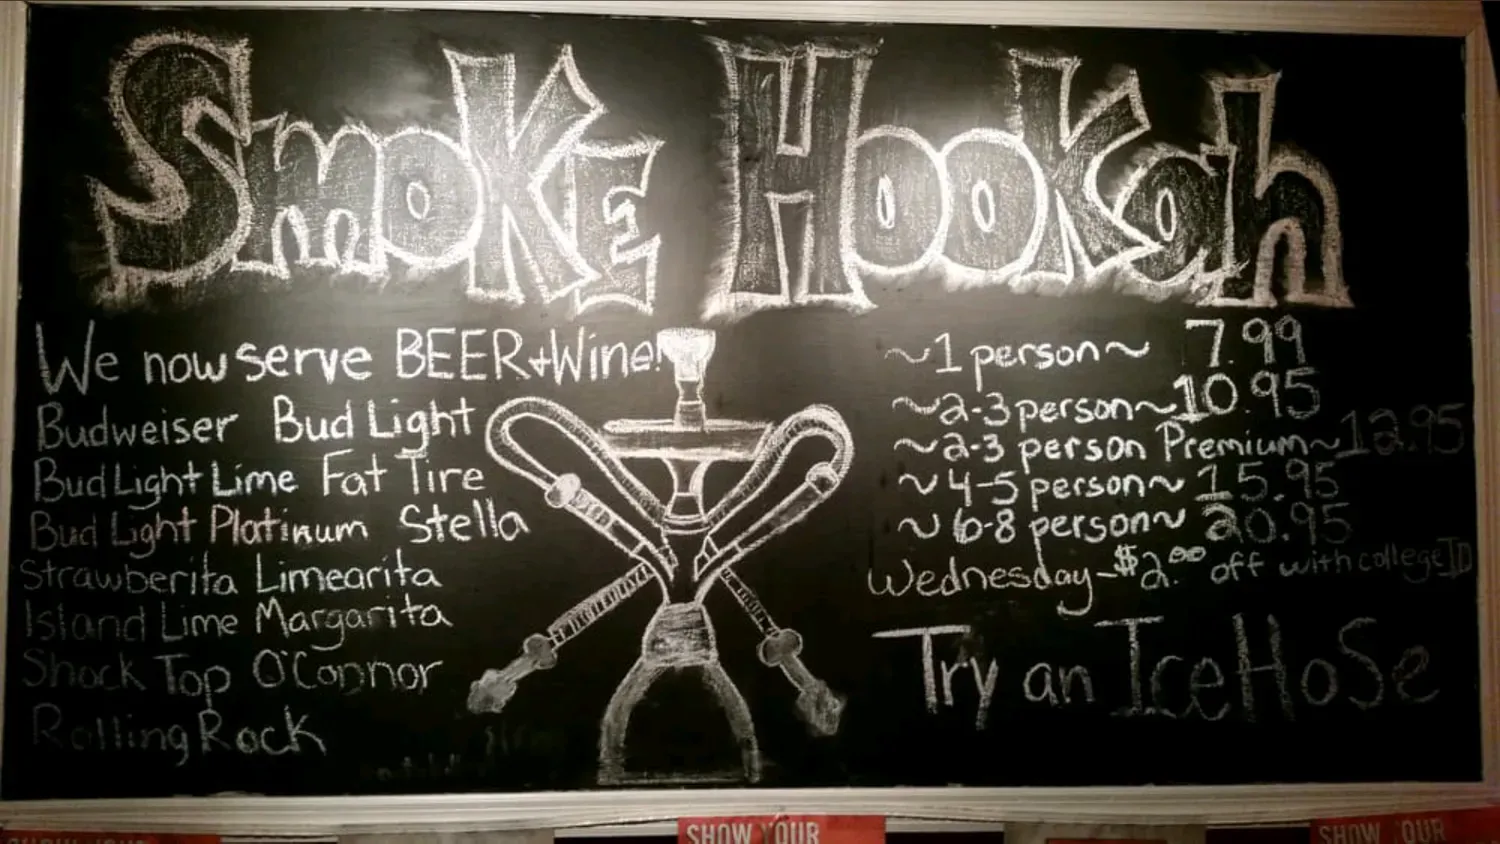 SmoKE HooKah
We now serve BEER+Wine!
Budweiser Bud Light
Bud Light Lime Fat Tire
Bud Light Platinum Stella
Strawberita Limearita
Island Lime Margarita
Shock Top O'Connor
Rolling Rock
~1 person~ 7.99
~2-3 person~ 10.95
~2-3 person Premium~ 12.95
~4-5 person~ 15.95
~6-8 person~ 20.95
Wednesday-$2.00 off with college ID
Try an IceHoSe
SHOW YOUR
SHOW YOUR
SHOW YOUR